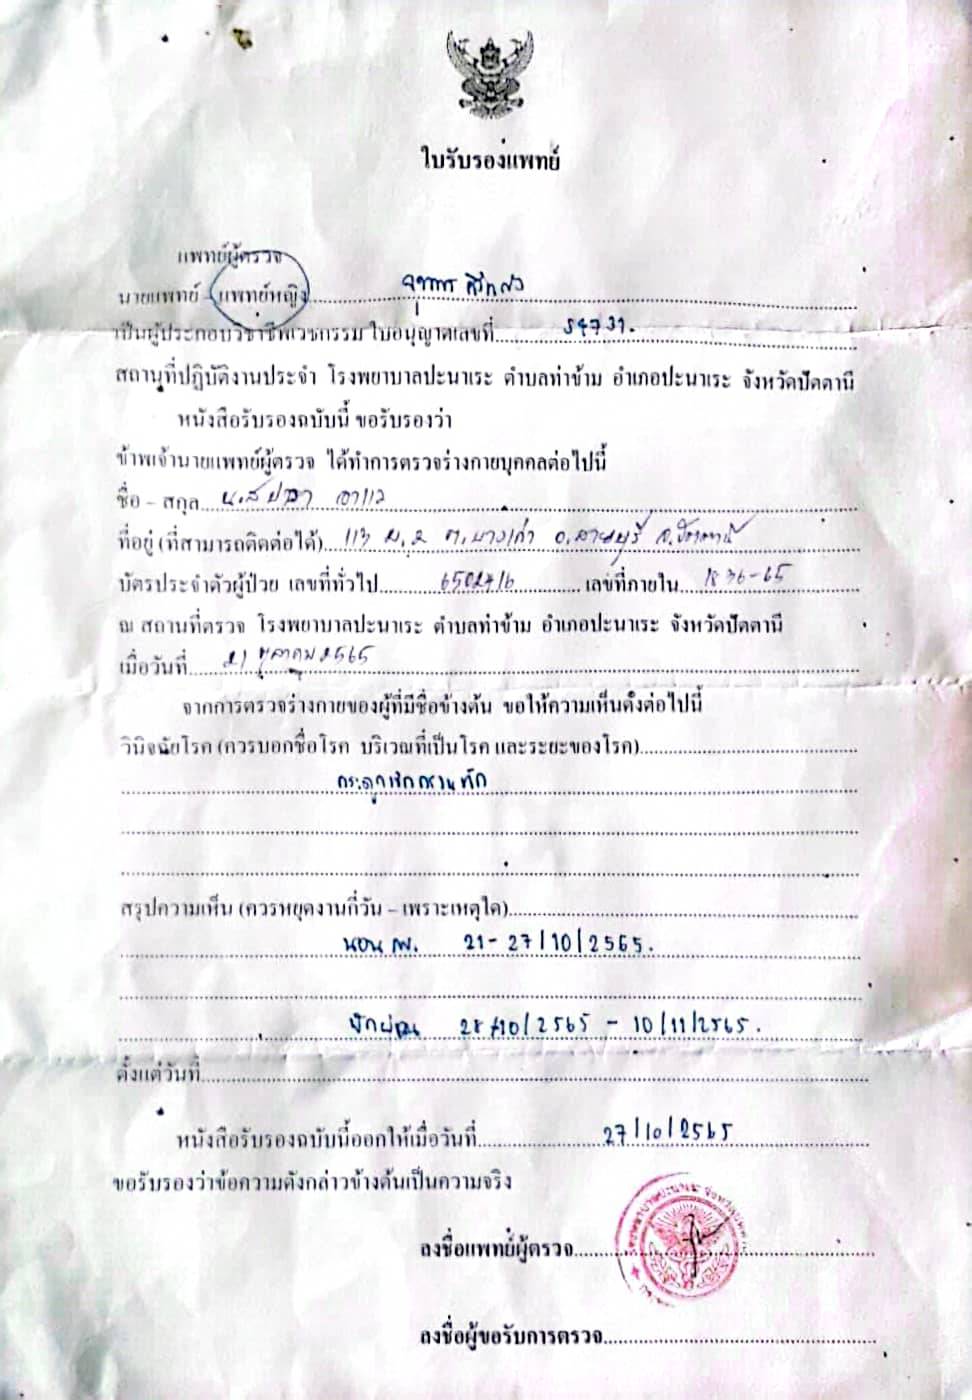 ใบรับรองแพทย์
แพทย์ผู้ตรวจ
นายแพทย์ - แพทย์หญิง
เป็นผู้ประกอบวิชาชีพเวชกรรม ใบอนุญาตเลขที่ 54731.
สถานที่ปฏิบัติงานประจำ โรงพยาบาลปะนาเระ ตำบลท่าข้าม อำเภอปะนาเระ จังหวัดปัตตานี
หนังสือรับรองฉบับนี้ ขอรับรองว่า
ข้าพเจ้านายแพทย์ผู้ตรวจ ได้ทำการตรวจร่างกายบุคคลต่อไปนี้
ชื่อ - สกุล น.ส
ที่อยู่ (ที่สามารถติดต่อได้) 113 ม.2 ต.บางเก่า อ.สายบุรี จ.ปัตตานี
บัตรประจำตัวผู้ป่วย เลขที่ทั่วไป เลขที่ภายใน 1836-65
ณ สถานที่ตรวจ โรงพยาบาลปะนาเระ ตำบลท่าข้าม อำเภอปะนาเระ จังหวัดปัตตานี
เมื่อวันที่ 21 ตุลาคม 2565
จากการตรวจร่างกายของผู้ที่มีชื่อข้างต้น ขอให้ความเห็นดังต่อไปนี้
วินิจฉัยโรค (ควรบอกชื่อโรค บริเวณที่เป็นโรค และระยะของโรค)
กระดูกเชิงกรานหัก
สรุปความเห็น (ควรหยุดงานกี่วัน - เพราะเหตุใด)
นอน รพ. 21-27/10/2565.
พักฟื้น 28/10/2565 - 10/11/2565.
ตั้งแต่วันที่
หนังสือรับรองฉบับนี้ออกให้เมื่อวันที่ 27/10/2565
ขอรับรองว่าข้อความดังกล่าวข้างต้นเป็นความจริง
ลงชื่อแพทย์ผู้ตรวจ
ลงชื่อผู้ขอรับการตรวจ